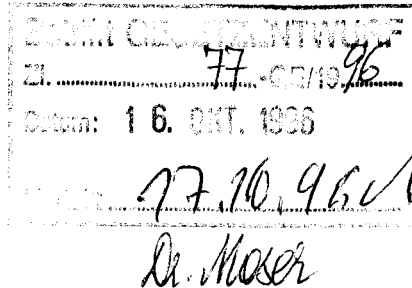 Betrifft GESETZENTWURF
Zl. 77 -GE/19 96
Datum: 16. OKT. 1996
17.10.96
Dr. Moser